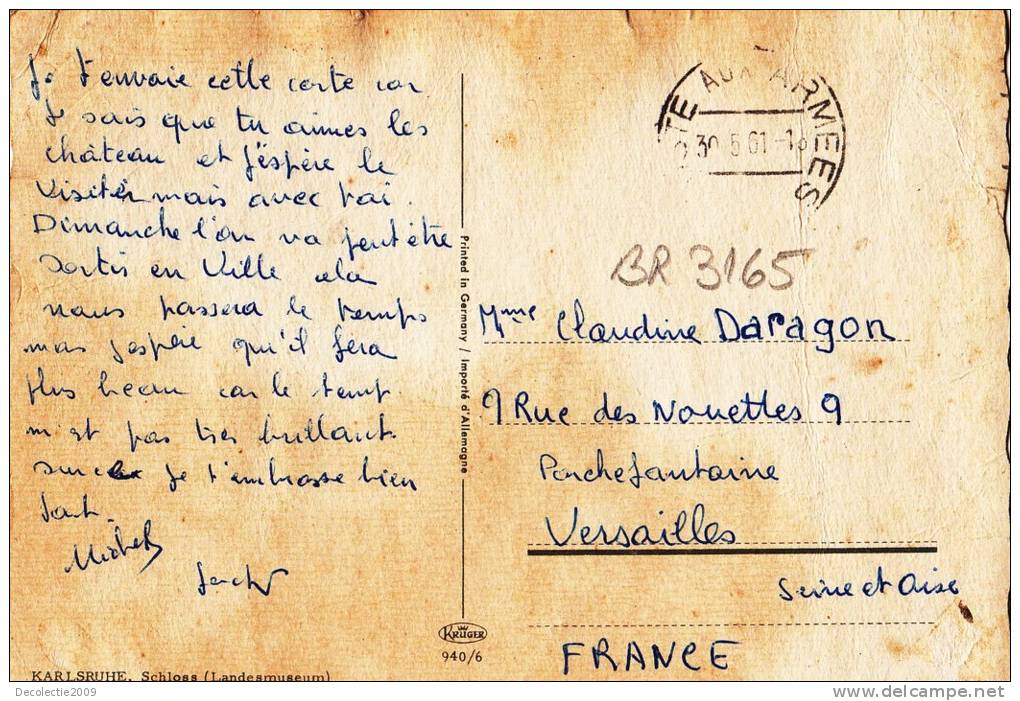 Je t'envoie cette carte car
Je sais que tu aimes les
château et J'éspère le
Visiter mais avec toi.
Dimanche l'on va peut être
Sortir en Ville cela
nous passera le temps
mas J'espère qu'il fera
plus beau car le temp
n'est pas très brillant
sur ce Je t'embrasse bien
fort.
Michel
POSTE AUX ARMEES
30 5 61 -18
BR 3165
Mme Claudine Daragon
9 Rue des Nouettes 9
Porchefontaine
Versailles
Seine et Oise
FRANCE
Printed in Germany / Importé d'Allemagne
KRÜGER
940/6
KARLSRUHE. Schloss (Landesmuseum)
Decolectie2009
http://www.delcampe.net